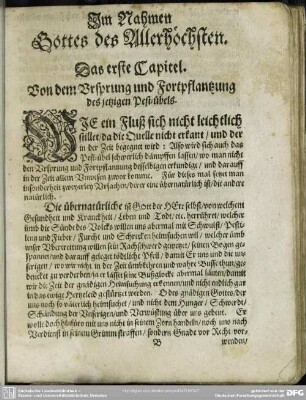 Im Nahmen
Gottes des Allerhöchsten.
Das erste Capitel.
Von dem Vrsprung und Fortpflantzung
des jetzigen Pestübels.
WIE ein Fluß sich nicht leichtlich
stillet / da die Quelle nicht erkant / und der
in der Zeit begegnet wird : Also wird sich auch das
Pestübel schwerlich dämpffen lassen / wo man nicht
den Vrsprung und Fortpflantzung desselbigen erkündige / und darauff
in der Zeit allem Unwesen zuvor komme. Für dieses mal setzet man
insonderheit zweyerley Vrsachen / derer eine übernatürlich ist / die andere
natürlich.
Die übernatürliche ist Gott der HErr selbst / von welchem
Gesundheit und Kranckheit / Leben und Todt / etc. herrühret / von welcher
umb die Sünde des Volcks willen uns abermal mit Pesti-
lentz und Fieber / Furcht und Schrecken heimsuchen will / welcher umb
unser Vbertretung willen sein Rachschwerd gewetzet / seinen Bogen ge-
spannen / und darauf geleget tödtliche Pfeil / damit Er uns und die un-
serigen / wo wir nicht in der Zeit umbkehren und wahre Busse
zu verderben / er lasset seine Bußglocke abermal läuten / damit
wir die Zeit der gnädigen Heimsuchung erkennen / und nicht endlich gar
in das ewige Zeter gestürtzet werden. O des gnädigen Gottes / der
uns noch so väterlich heimsuchet / und nicht dem Hunger / Schwerdt /
Schändung der Unserigen / und Verwüstung über uns gebeut. Er
wolle doch hinfüro mit uns nicht in seinem Zorn handeln / noch uns nach
Verdienst in seinem Grimm straffen / sondern Gnade vor Recht vor-
B
wenden /